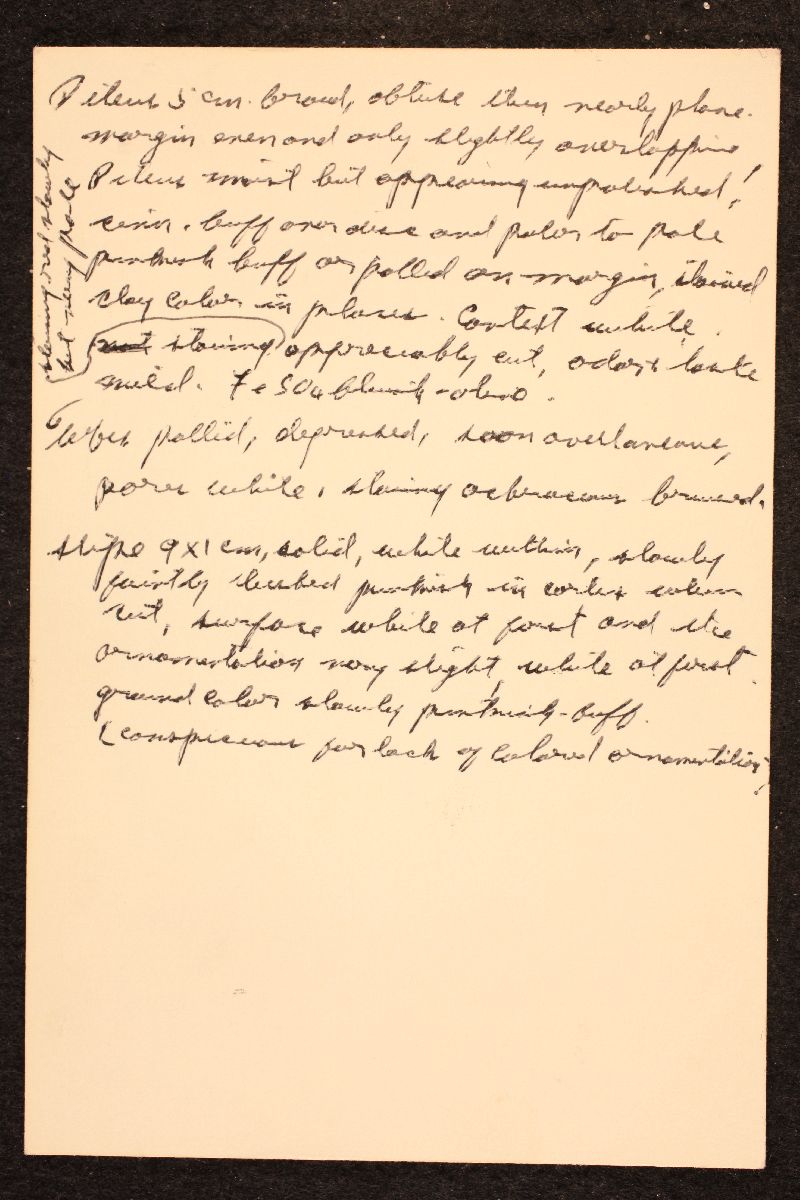 Pileus 5 cm. broad, obtuse then nearly plane.
margin even and only slightly overlapping!
Pileus moist but appearing unpolished!
cinn. buff over disc and paler to pale
pinkish buff or pallid on margin, stained
clay color in places. Context white.
not staining appreciably cut, odor & taste
mild. FeSO4 bluish-olive.
staining red slowly
but very pale
Tubes pallid, depressed, soon avellaneous,
pores white, staining ochraceous bruised.
stipe 9x1 cm, solid, white within, slowly
faintly flushed pinkish in cortex when
cut, surface white at first and the
ornamentation very slight, white at first.
ground color slowly pinkish-buff.
(conspicuous for lack of colored ornamentation!